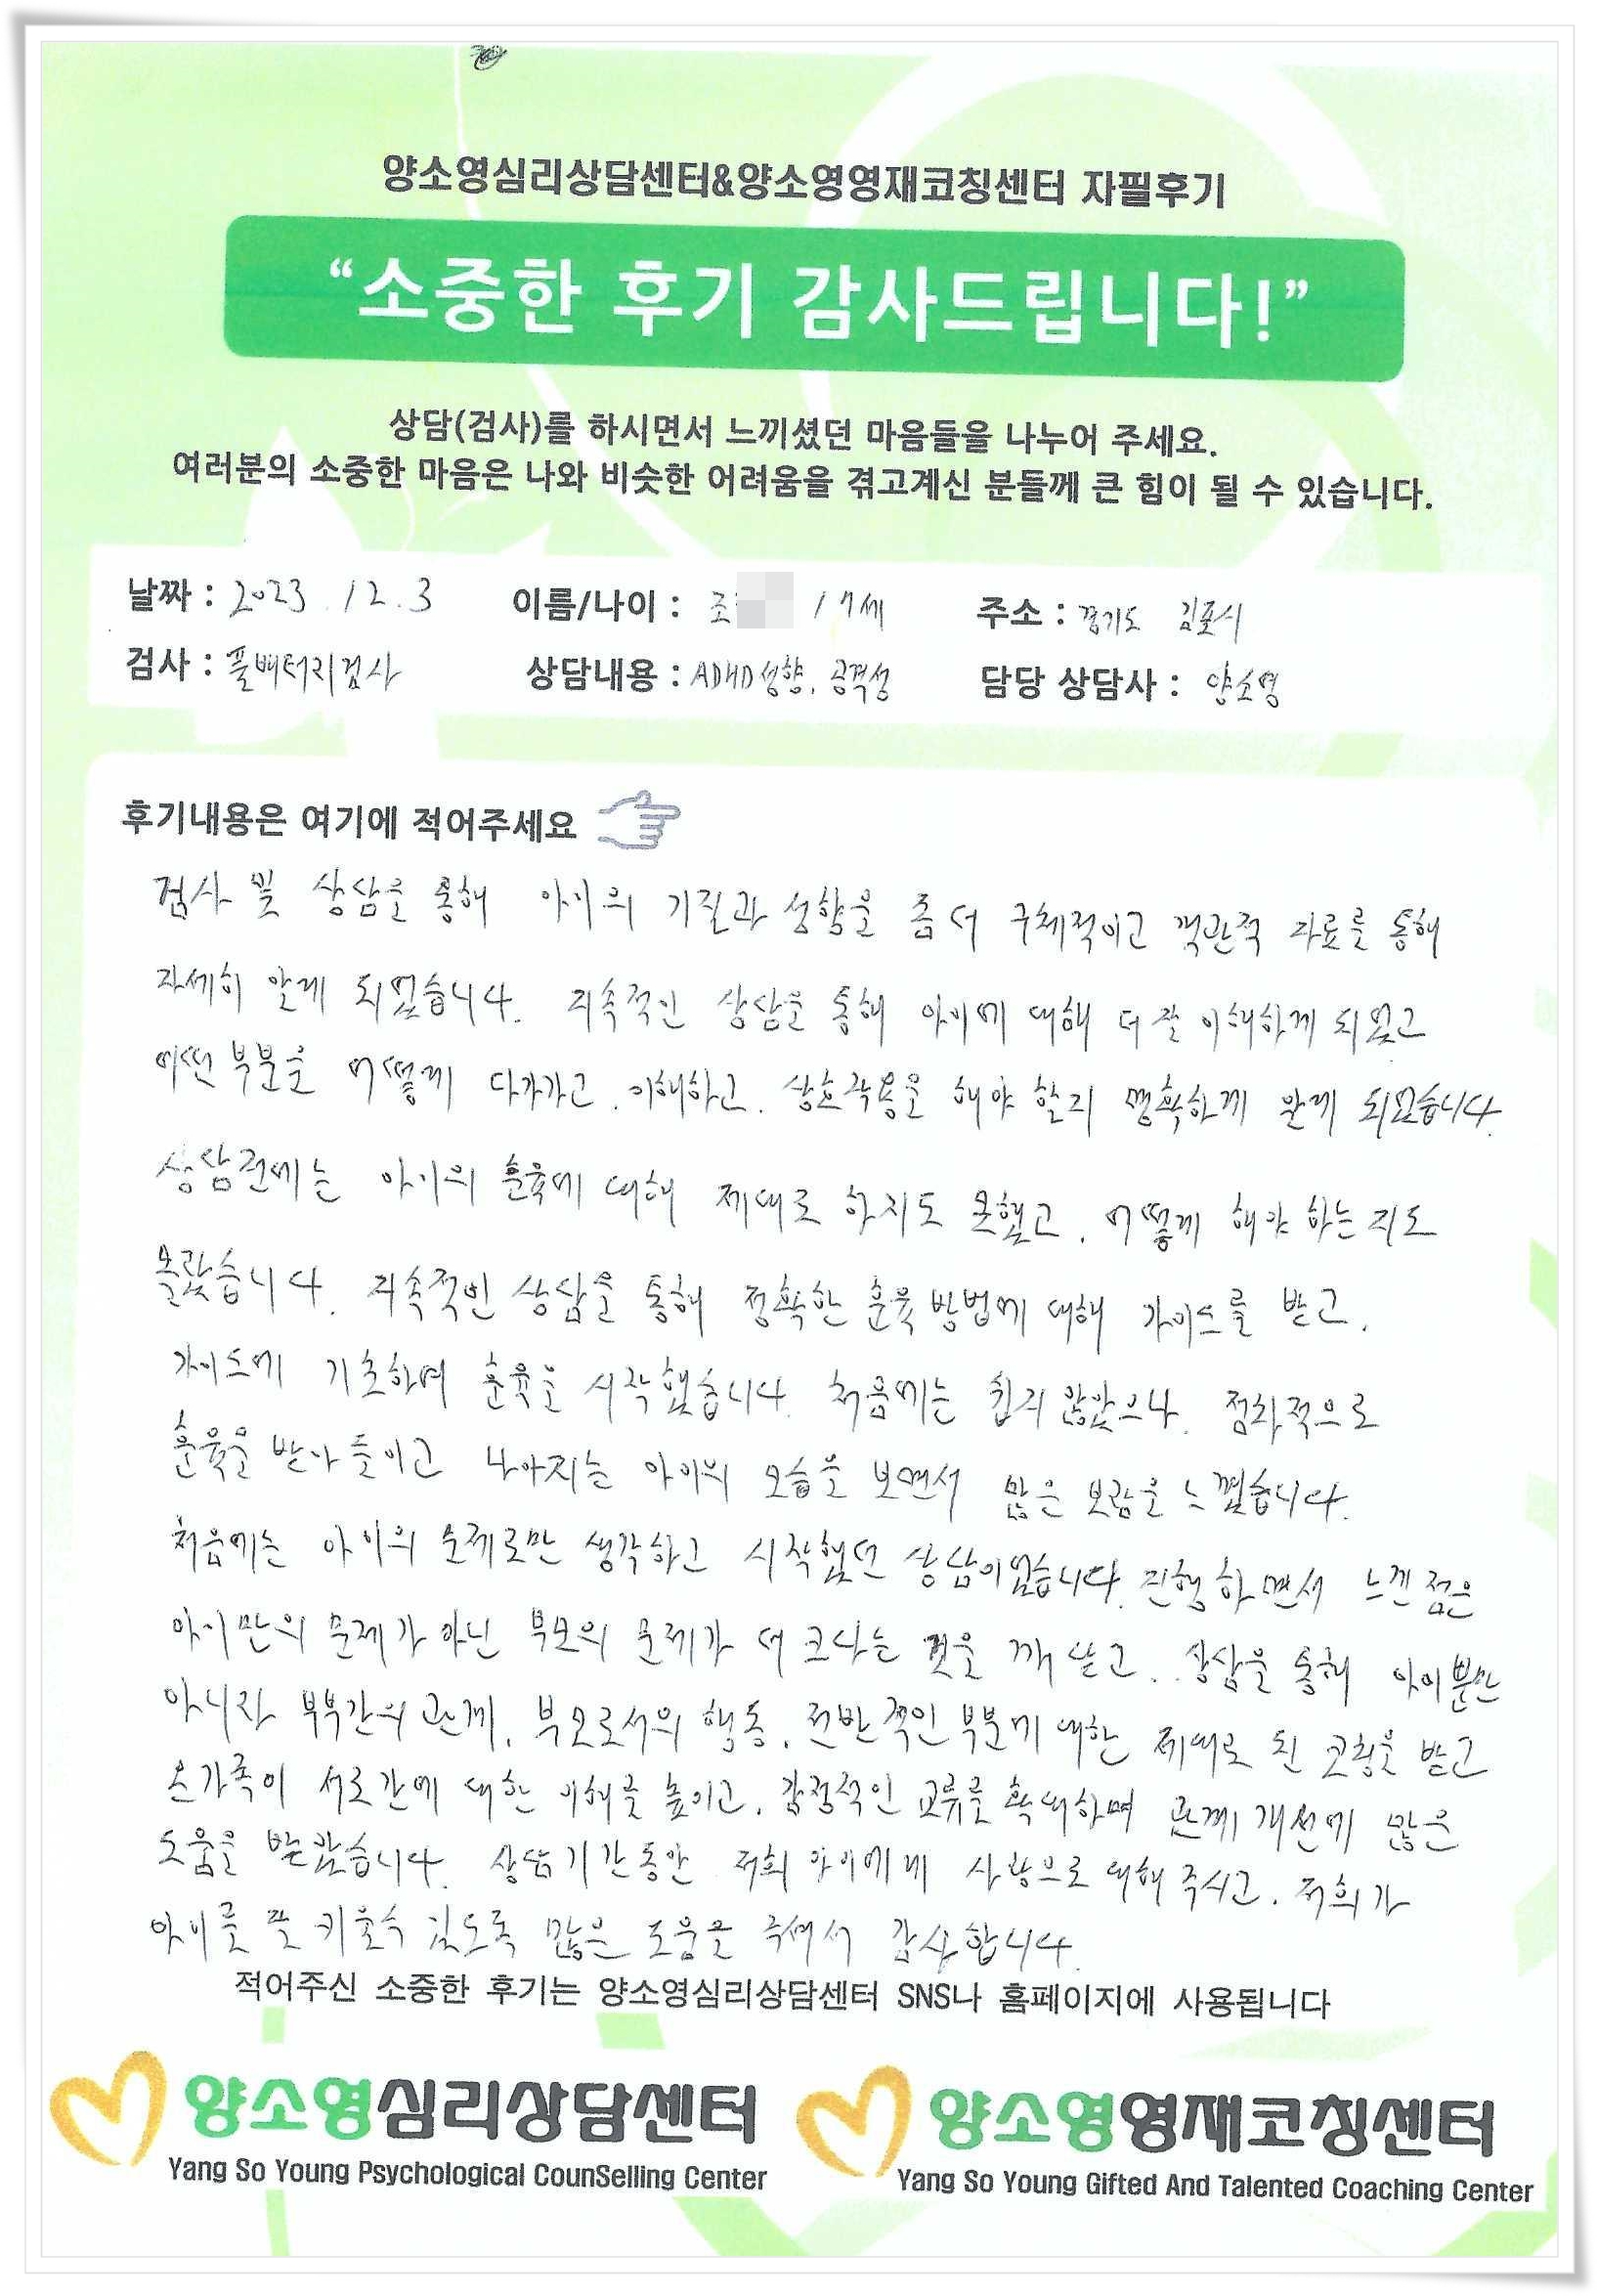 양소영심리상담센터&양소영영재코칭센터 자필후기
“소중한 후기 감사드립니다!”
상담(검사)를 하시면서 느끼셨던 마음들을 나누어 주세요.
여러분의 소중한 마음은 나와 비슷한 어려움을 겪고계신 분들께 큰 힘이 될 수 있습니다.
날짜 : 2023. 12. 3 이름/나이 : 조 / 7세 주소 : 경기도 김포시
검사 : 풀배터리검사 상담내용 : ADHD성향, 공격성 담당 상담사 : 양소영
후기내용은 여기에 적어주세요
검사 및 상담을 통해 아이의 기질과 성향을 좀 더 구체적이고 객관적 자료를 통해
자세히 알게 되었습니다. 지속적인 상담을 통해 아이에 대해 더 잘 이해하게 되었고
어떤 부분을 어떻게 다가가고, 이해하고, 상호작용을 해야 할지 명확하게 알게 되었습니다.
상담전에는 아이의 훈육에 대해 제대로 하지도 못했고, 어떻게 해야 하는지도
몰랐습니다. 지속적인 상담을 통해 정확한 훈육 방법에 대해 가이드를 받고,
가이드에 기초하며 훈육을 시작했습니다. 처음에는 쉽지 않았으나, 점차적으로
훈육을 받아들이고 나아지는 아이의 모습을 보면서 많은 보람을 느꼈습니다.
처음에는 아이의 문제로만 생각하고 시작했던 상담이었습니다. 진행하면서 느낀점은
아이만의 문제가 아닌 부모의 문제가 더 크다는 것을 깨닫고, 상담을 통해 아이뿐만
아니라 부부간의 관계, 부모로서의 행동, 전반적인 부분에 대한 제대로 된 코칭을 받고
온가족이 서로간에 대한 이해를 높이고, 감정적인 교류를 확대하며 관계 개선에 많은
도움을 받았습니다. 상담기간동안 저희 아이에게 사랑으로 대해 주시고, 저희가
아이를 잘 키울수 있도록 많은 도움을 주셔서 감사합니다.
적어주신 소중한 후기는 양소영심리상담센터 SNS나 홈페이지에 사용됩니다
양소영심리상담센터 양소영영재코칭센터
Yang So Young Psychological CounSelling Center Yang So Young Gifted And Talented Coaching Center